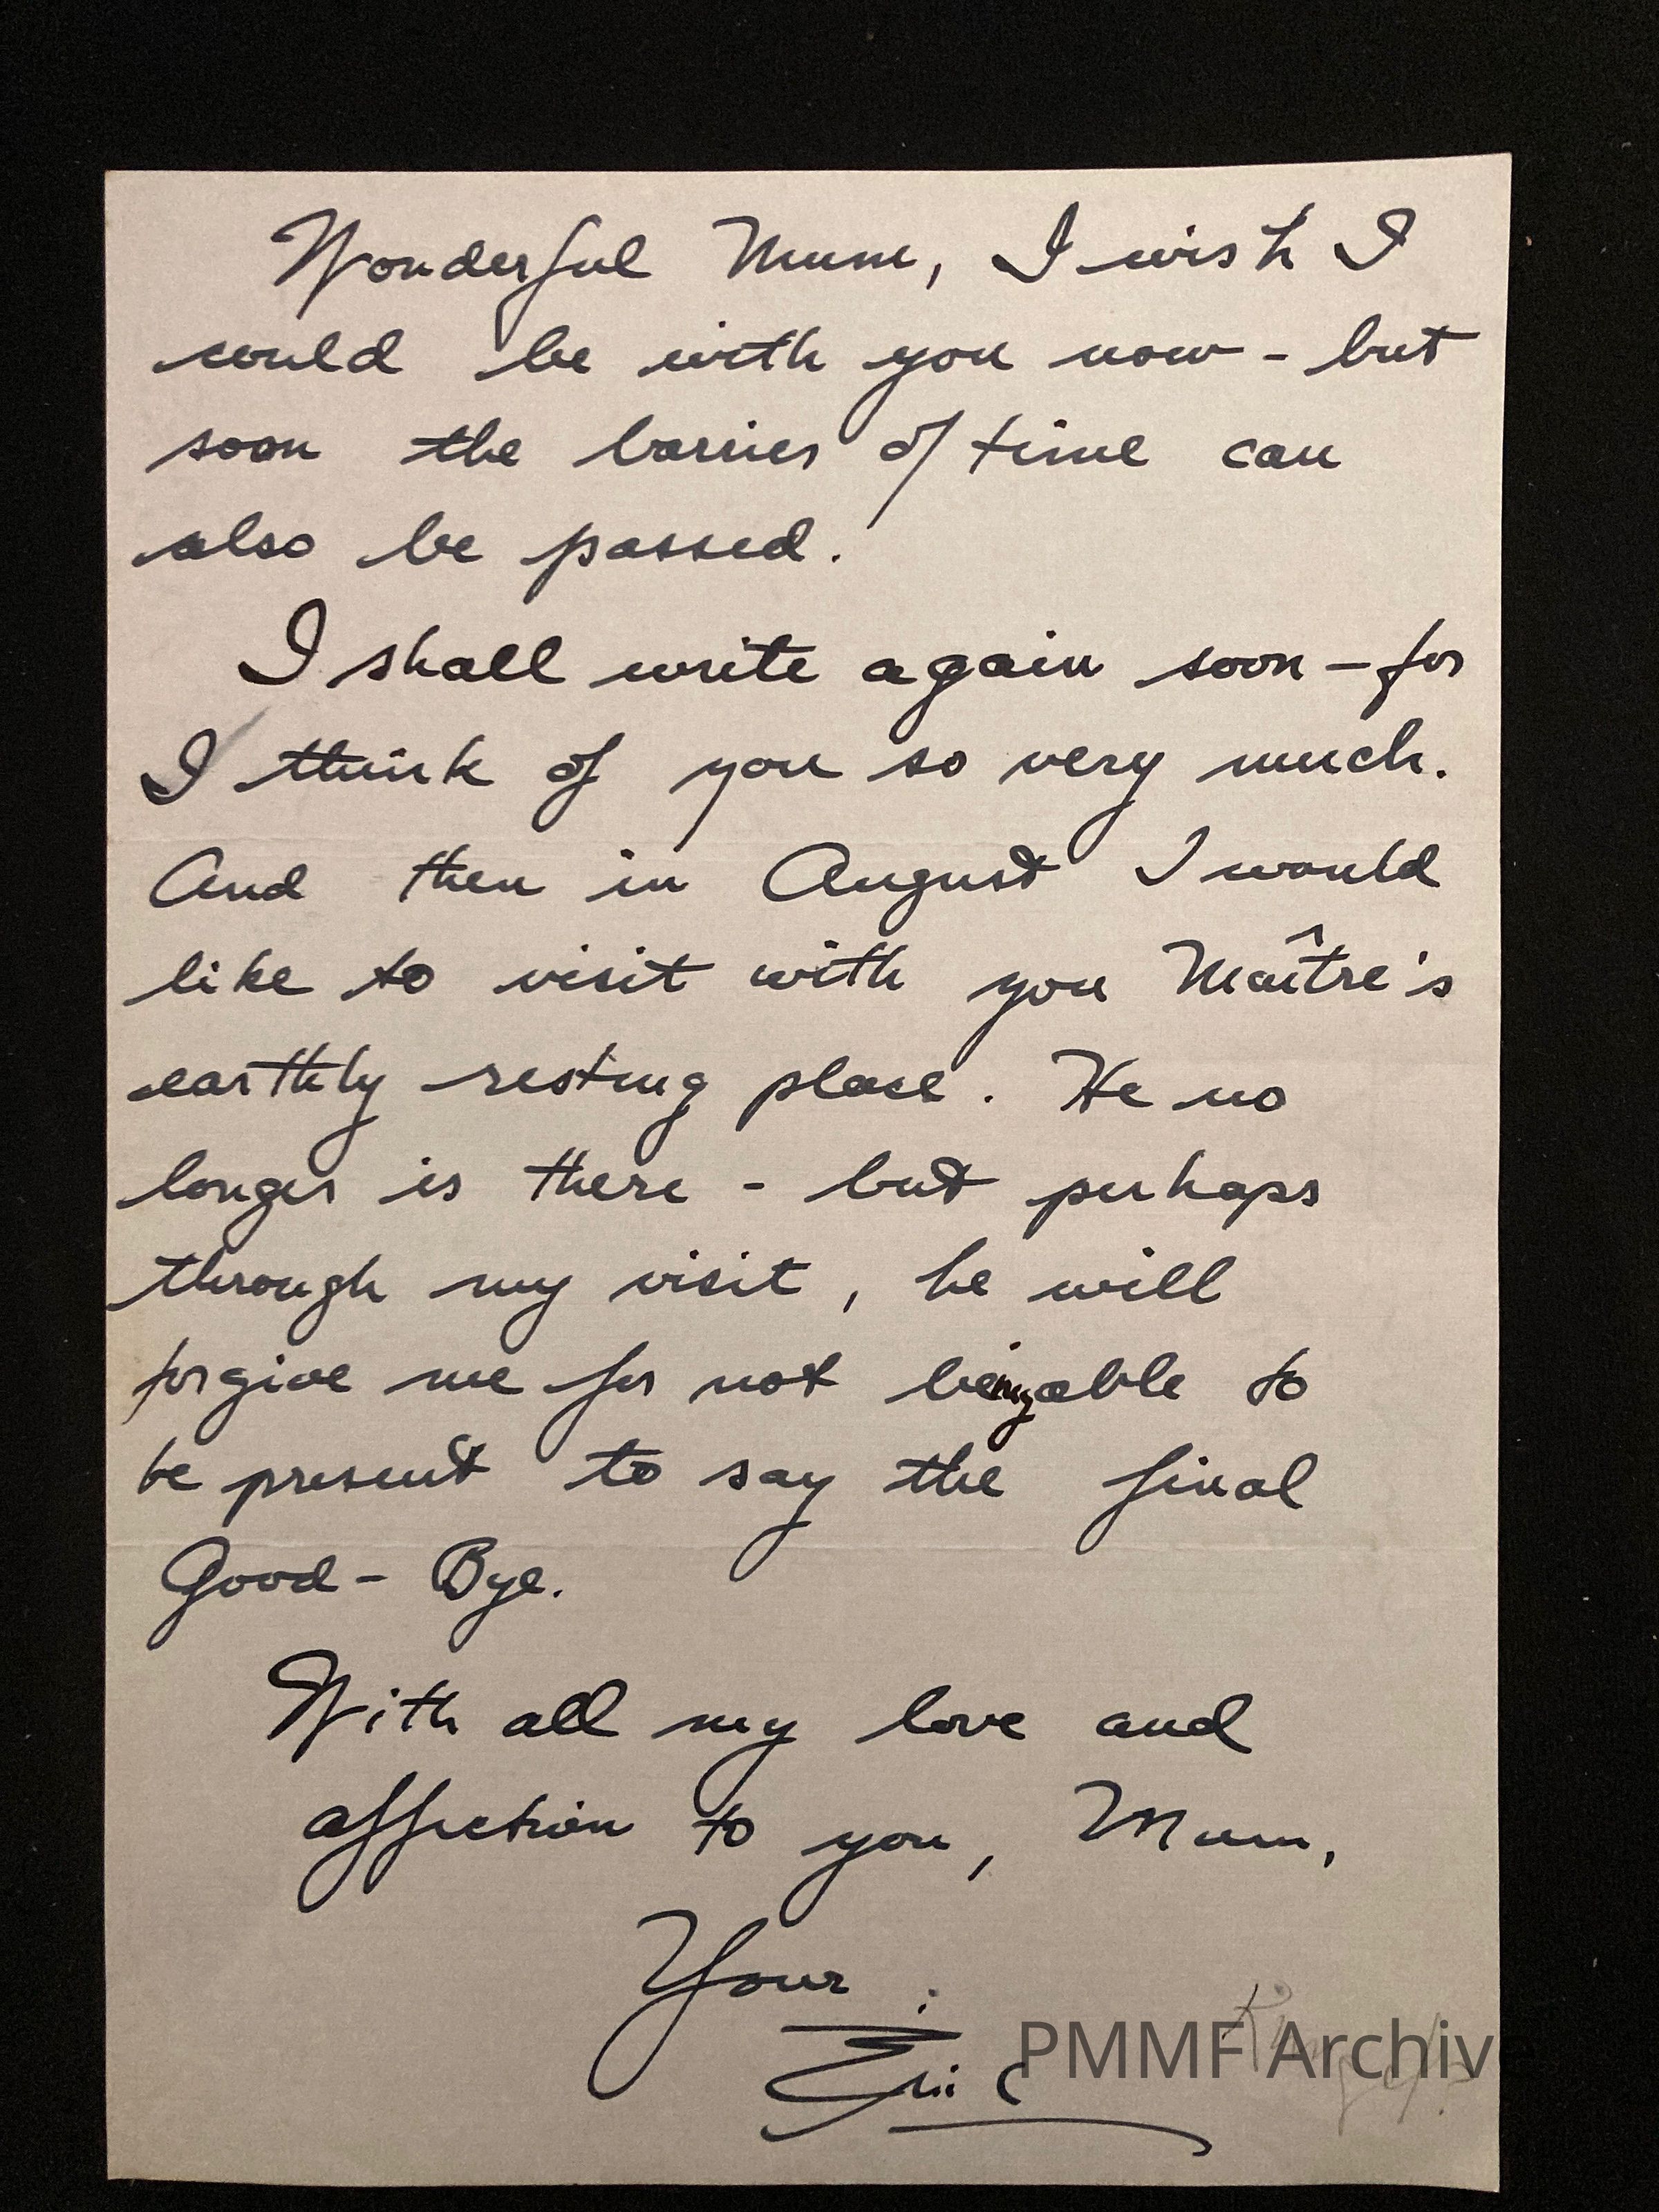 Wonderful Mum, I wish I
could be with you now - but
soon the barrier of time can
also be passed.
I shall write again soon - for
I think of you so very much.
And then in August I would
like to visit with you Maître's
earthly resting place. He no
longer is there - but perhaps
through my visit, he will
forgive me for not being able to
be present to say the final
Good-Bye.
With all my love and
affection to you, Mum,
Your
Eric
PMMF Archive